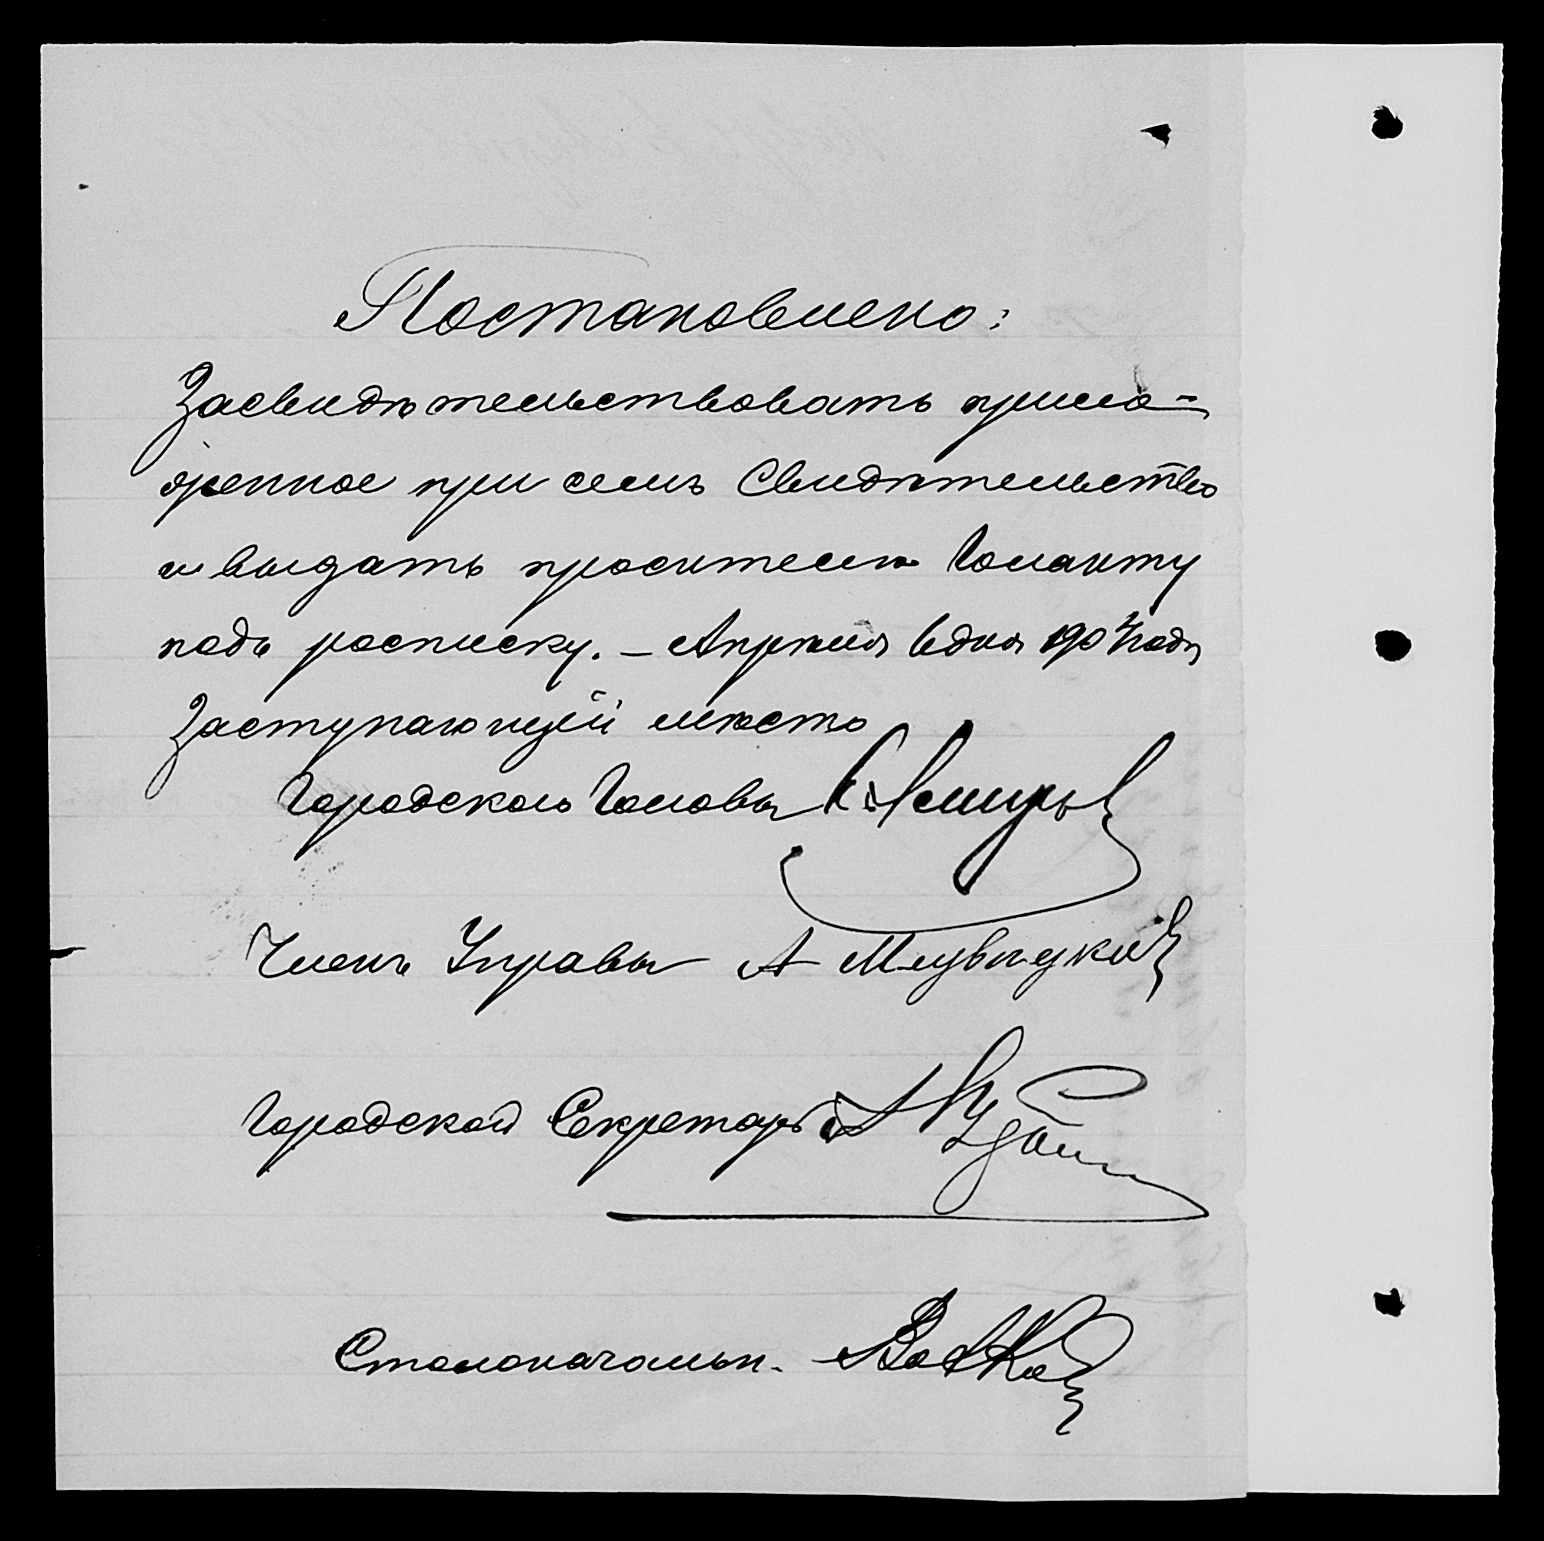 Постановлено:
Засвидѣтельствовать прило-
женное при семъ Свидѣтельство
и выдать просителю Голанту
подъ росписку. – Апрѣля 6 дня 1907 года
Заступающій мѣсто
Городского Головы
Членъ Управы А
Городской Секретарь
Столоначальн.